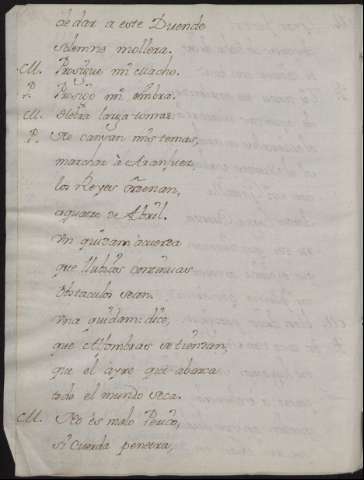 de dar a este Duende
solemne mollera.
M. Prosigue mi Macho.
P. Prosigo mi embra.
M. larga tomas
P. No canvan mis temas,
marchar à Aranjuez,
los Reyes ordenan,
a quatro de Abril.
Un quidam acuerda
que llubias continuas
obstaculos sean.
Una quidam dice,
que Alfombras se tiendan,
que el ayre que abarca
todo el mundo seca.
M. No es malo Perico,
si cuerda penetra,